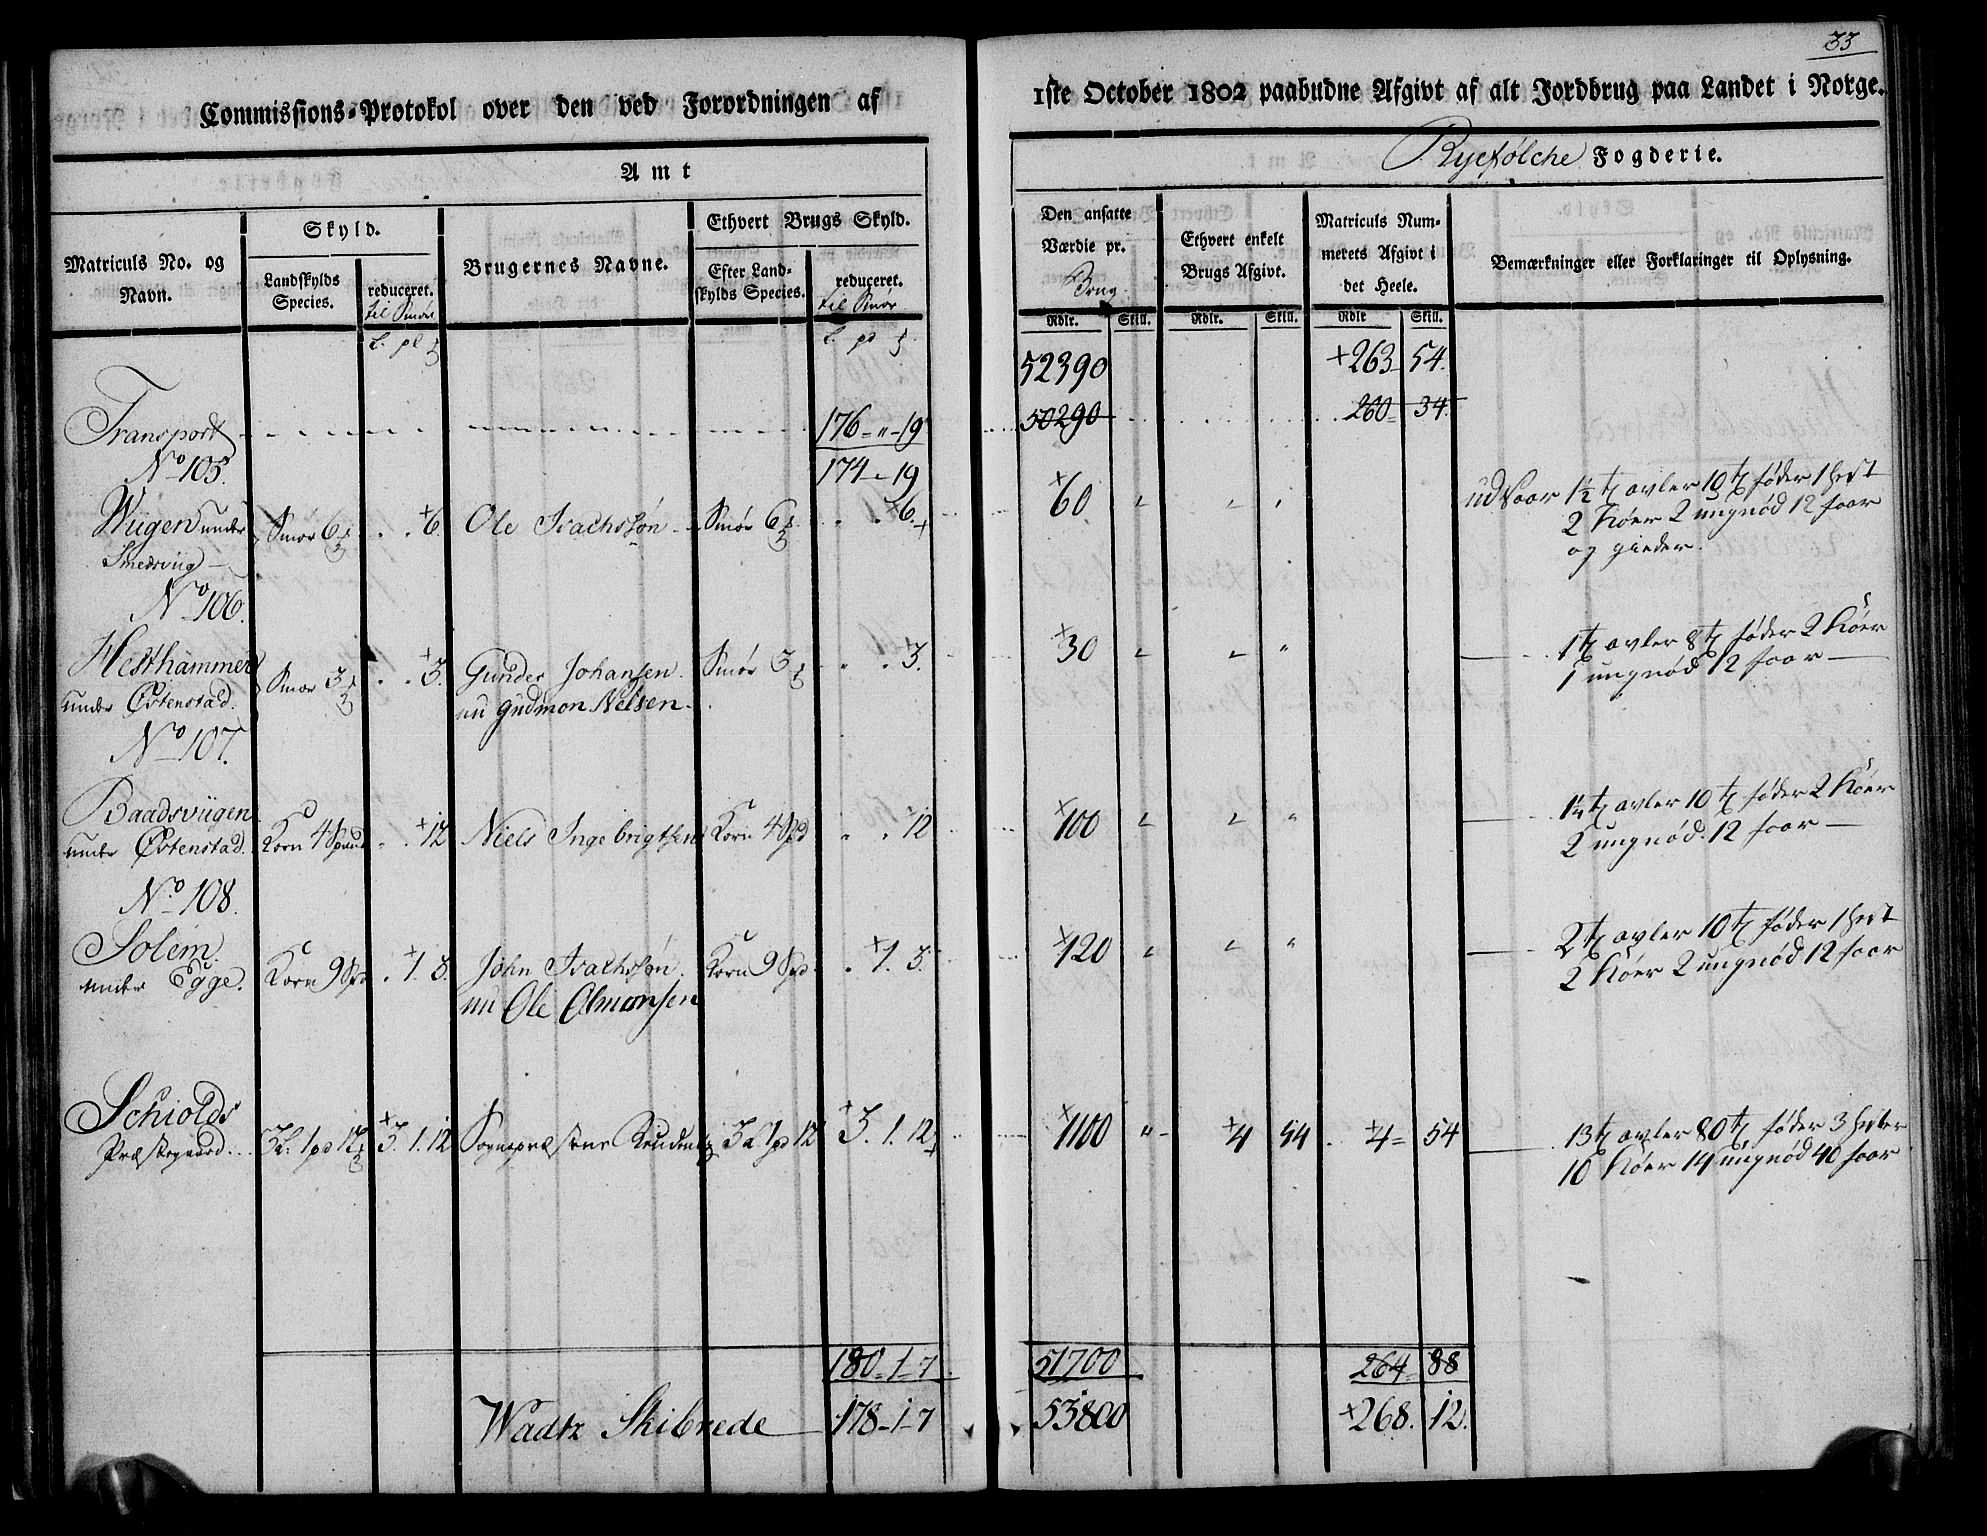 33
Commissions-Protokol over den ved Forordningen af
1ste October 1802 paabudne Afgivt af alt Jordbrug paa Landet i Norge.
Amt
Ryefølche Fogderie.
Matriculs No. og Navn.
Skyld.
Landskylds Species.
reduceret. til Smør
Brugernes Navne.
Ethvert Brugs Skyld.
Efter Landskylds Species.
reduceret. til Smør
Den ansatte Værdie pr. Brug.
Ethvert enkelt Brugs Afgivt.
Matriculs Nummerets Afgivt i det Heele.
Bemærkninger eller Forklaringer til Oplysning.
Rdlr. Skill. Rdlr. Skill. Rdlr Skill.
L. pd L. pd
52390 +263 54.
Transport 176 " 19 50290 260 34.
No 105. 174 " 19
Wiigen under Smør 6 +6 Ole Ivachssøn Smør 6 6. +60 " " " udsaar 1½ tr avler 10 tr føder 1 hest
Smedsviig 2 Kóer 2 ungnød 12 faar
og gieder.
No 106.
Hesthammer Smør 3 +3. Gunder Johansen. Smør 3 +3. +30 " " " 1 tr avler 8 tr føder 2 Kóer
under Østenstad. nu Gudmon Nelsen 1 ungnød 12 faar
No 107.
Baadsviigen
under Østenstad. Korn 4 Spand +12 Niels Ingebrigtsen Korn 4 Spd +12 +100 " " " 1¼ tr avler 10 tr føder 2 Kóer
2 ungnød. 12 faar
No 108.
Solem. Korn 9 Spd +1. 3. John Ivachssøn. Korn 9 Spd +1. 3. +120 " " " 2 tr avler 10 tr føder 1 hest
under Egge. nu Ole Olmonsen 2 Kóer 2 ungnød 12 faar
Schiolds
Præstegaard. 3 L. 1 pd 12 +3. 1. 12 Sognepræstens 3 L 1 pd 12 +3. 1. 12 +1100 " +4 54 +4 54 13 tr avler 80 tr føder 3 hester
10 Kóer 14 ungnød 40 faar
180 1 7 51700 264 88
Wadtz Skibrede 178 1 7 53800 +268. 12.